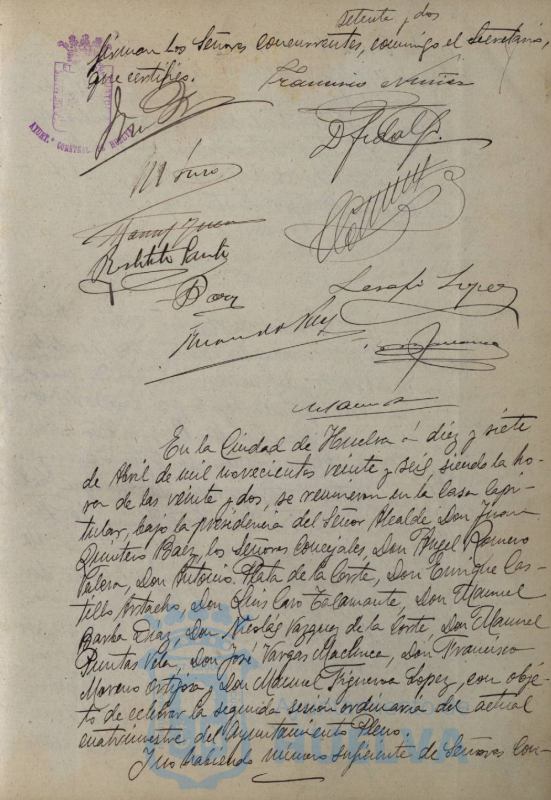 setenta y dos
firman los Señores concurrentes, conmigo el Secretario,
que certifico.
Francisco Nuñez
AYUNT.º CONSTNAL. DE HUELVA
D. Fidalgo
Restituto
Baez
Serafin Lopez
Fernando
En la Ciudad de Huelva á diez y siete
de Abril de mil novecientos veinte y seis, siendo la ho-
ra de las veinte y dos, se reunieron en la Casa Capi-
tular, bajo la presidencia del Señor Alcalde, Don Juan
Quintero Baez, los Señores Concejales, Don Angel Romero
Valera, Don Antonio Plata de la Corte, Don Enrique Cas-
tillo Astacho, Don Luis Caro Talamante, Don Manuel
Barba Diaz, Don Nicolás Vazquez de la Corte, Don Manuel
Puntas Vela, Don José Vargas Machuca, Don Francisco
Moreno Ortega y Don Manuel Figueroa Lopez, con obje-
to de celebrar la segunda sesión ordinaria del actual
cuatrimestre del Ayuntamiento Pleno.
Y no habiendo número suficiente de Señores Con-
HUELVA